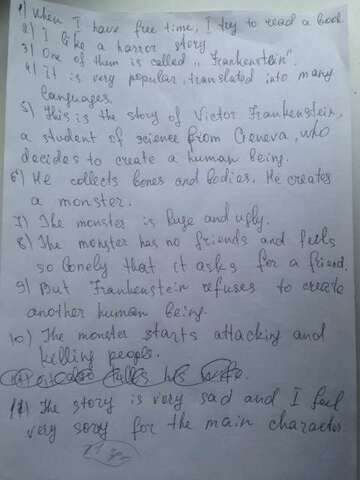 1) When I have free time, I try to read a book
2) I like a horror story
3) One of them is called „Frankenstein".
4) It is very popular, translated into many
languages.
5) This is the story of Victor Frankenstein,
a student of science from Geneva, who
decides to create a human being.
6) He collects bones and bodies. He creates
a monster.
7) The monster is huge and ugly.
8) The monster has no friends and feels
so lonely that it asks for a friend.
9) But Frankenstein refuses to create
another human being.
10) The monster starts attacking and
killing people.
kills his wife.
The story is very sad and I feel
very sory for the main character